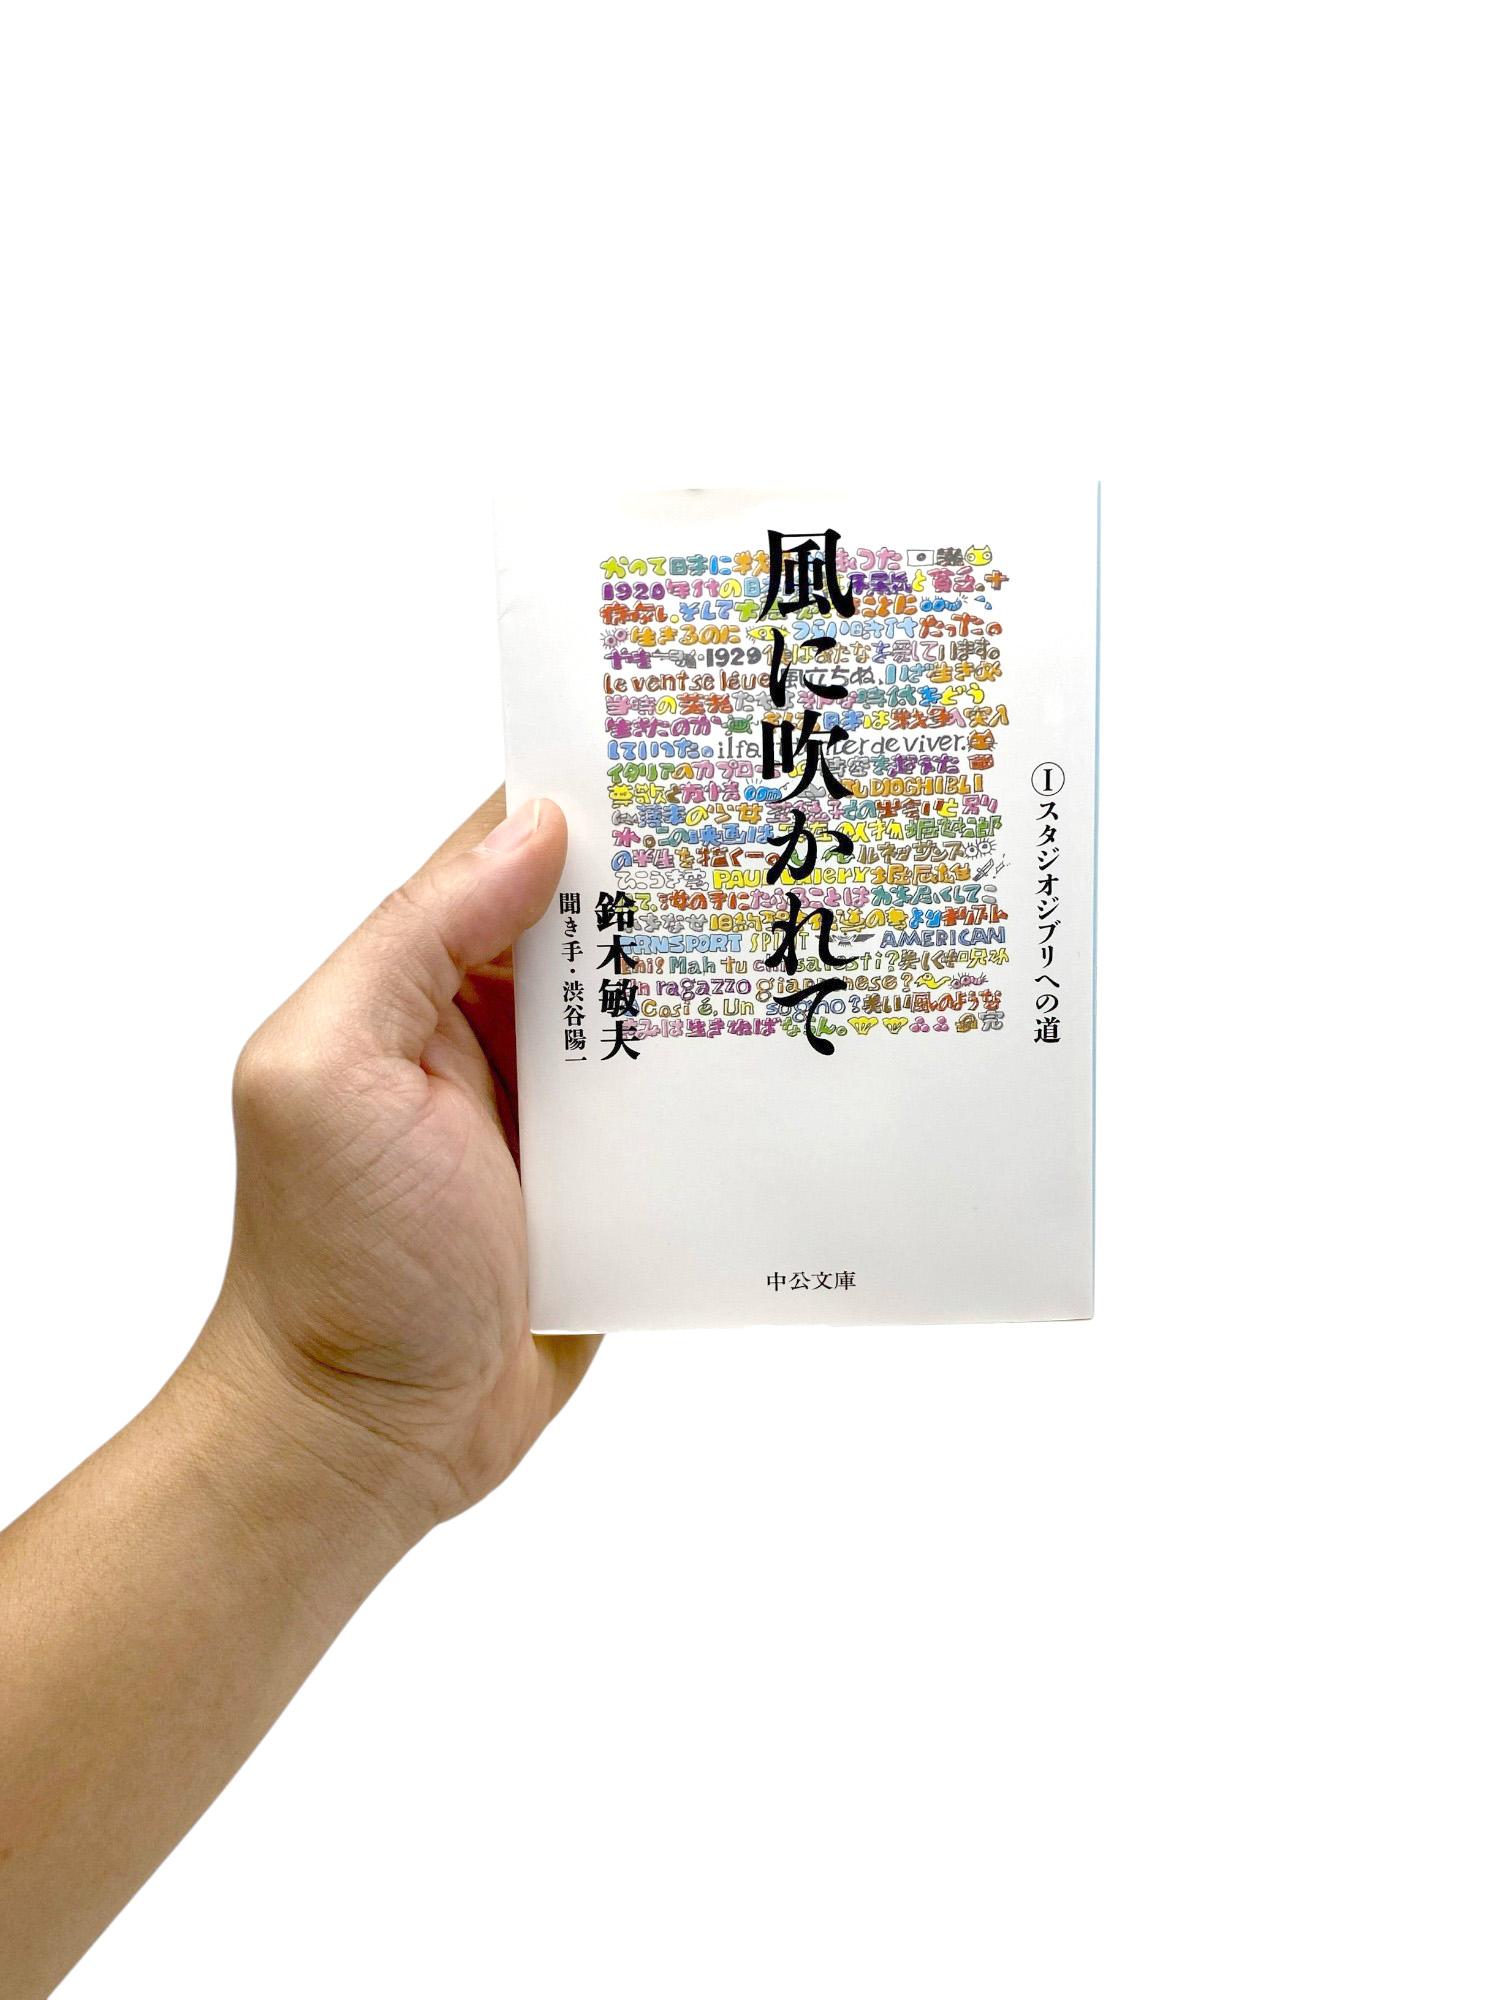 風に吹かれて
Ⅰ スタジオジブリへの道
鈴木敏夫
聞き手・渋谷陽一
かつて日本に
1920年代の日本 不景気と貧乏。
病気、そして大
生きるのに つらい時代だった。
1929 はあなたを愛しています。
le vent se lève 風立ちぬ、いざ生きめ
当時の若者たちは 時代をどう
生きたのか 日本は戦争へ突入
していった。il fa ter de viver.
イタリアのカプローニ 時空を超えた
尊敬と友情 STUDIO GHIBLI
薄幸の少女 の出会いと別
れ。この映画は の人物 堀越二郎
の半生を描く ルネッサンス
ひこうき雲 PAUL Valery 堀辰雄
AMERICAN
un ragazzo giapponese?
Cosi é, Un sogno? 美しい風のような
きみは生きねばならん。 完
中公文庫